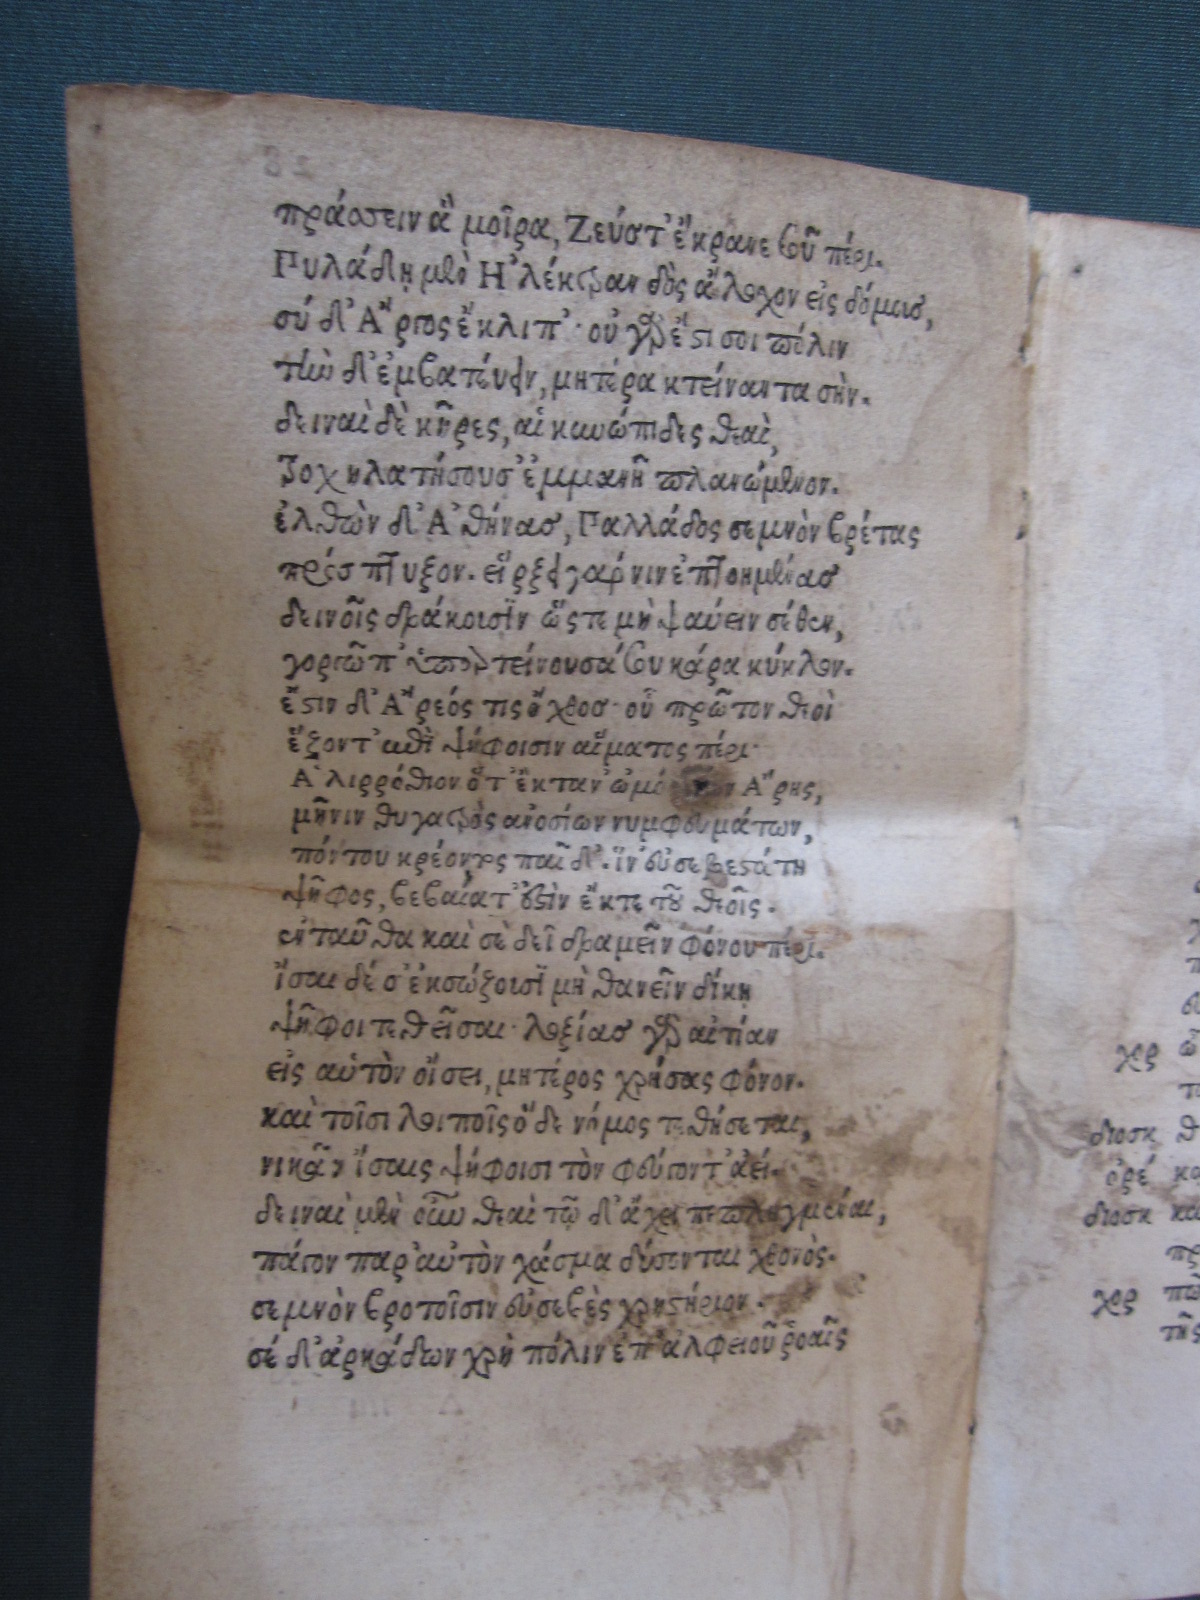 πράσσειν ἃ μοῖρα, Ζεύς τ' ἔκρανε σοῦ πέρι.
Πυλάδῃ μὲν Ἠλέκτραν δὸς ἄλοχον εἰς δόμους,
σύ δ' Ἄργος ἔκλιπ'· οὐ γὰρ ἔστι σοι πόλιν
τήνδ' ἐμβατεύειν, μητέρα κτείναντα σήν.
δειναὶ δὲ κῆρες, αἱ κυνώπιδες θεαὶ,
τροχηλατήσουσ' ἐμμανῆ πλανώμενον.
ἐλθὼν δ' Ἀθήνας, Παλλάδος σεμνὸν βρέτας
πρόσπτυξον. εἵρξει γάρ νιν ἐπτοημένας
δεινοῖς δράκουσιν ὥστε μὴ ψαύειν σέθεν,
γοργῶπ' ὑπερτείνουσά σου κάρα κύκλον.
ἔστιν δ' Ἄρεός τις ὄχθος· οὗ πρῶτον θεοὶ
ἕζοντ' ἐπὶ ψήφοισιν αἵματος πέρι·
Ἁλιρρόθιον ὅτ' ἔκταν' Ἄρης,
μῆνιν θυγατρὸς ἀνοσίων νυμφευμάτων,
πόντου κρέοντος παῖδ'. ἵν' εὐσεβεστάτη
ψῆφος, βεβαία τ' ἐστὶν ἔκ τε τοῦ θεοῖς.
ἐνταῦθα καὶ σὲ δεῖ δραμεῖν φόνου πέρι.
ἴσαι δέ σ' ἐκσώζουσι μὴ θανεῖν δίκῃ
ψῆφοι τεθεῖσαι· λοξίας γὰρ αἰτίαν
εἰς αὑτὸν οἴσει, μητέρος χρήσας φόνον.
καὶ τοῖσι λοιποῖς ὅδε νόμος τεθήσεται,
νικᾶν ἴσαις ψήφοισι τὸν φεύγοντ' ἀεί.
δειναὶ μὲν οὖν θεαὶ τῷδ' ἄχει πεπληγμέναι,
πάγον παρ' αὐτὸν χάσμα δύσονται χθονὸς.
σεμνὸν βροτοῖσιν εὐσεβὲς χρηστήριον.
σέ δ' ἀρκάδων χρὴ πόλιν ἐπ' ἀλφειοῦ ῥοαῖς
χορ
διοσκ
ὀρέ
διοσκ
χορ
τῆς